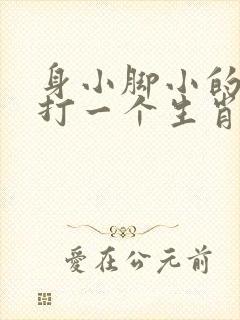 身小脚小的
打一个生肖
爱在公元前